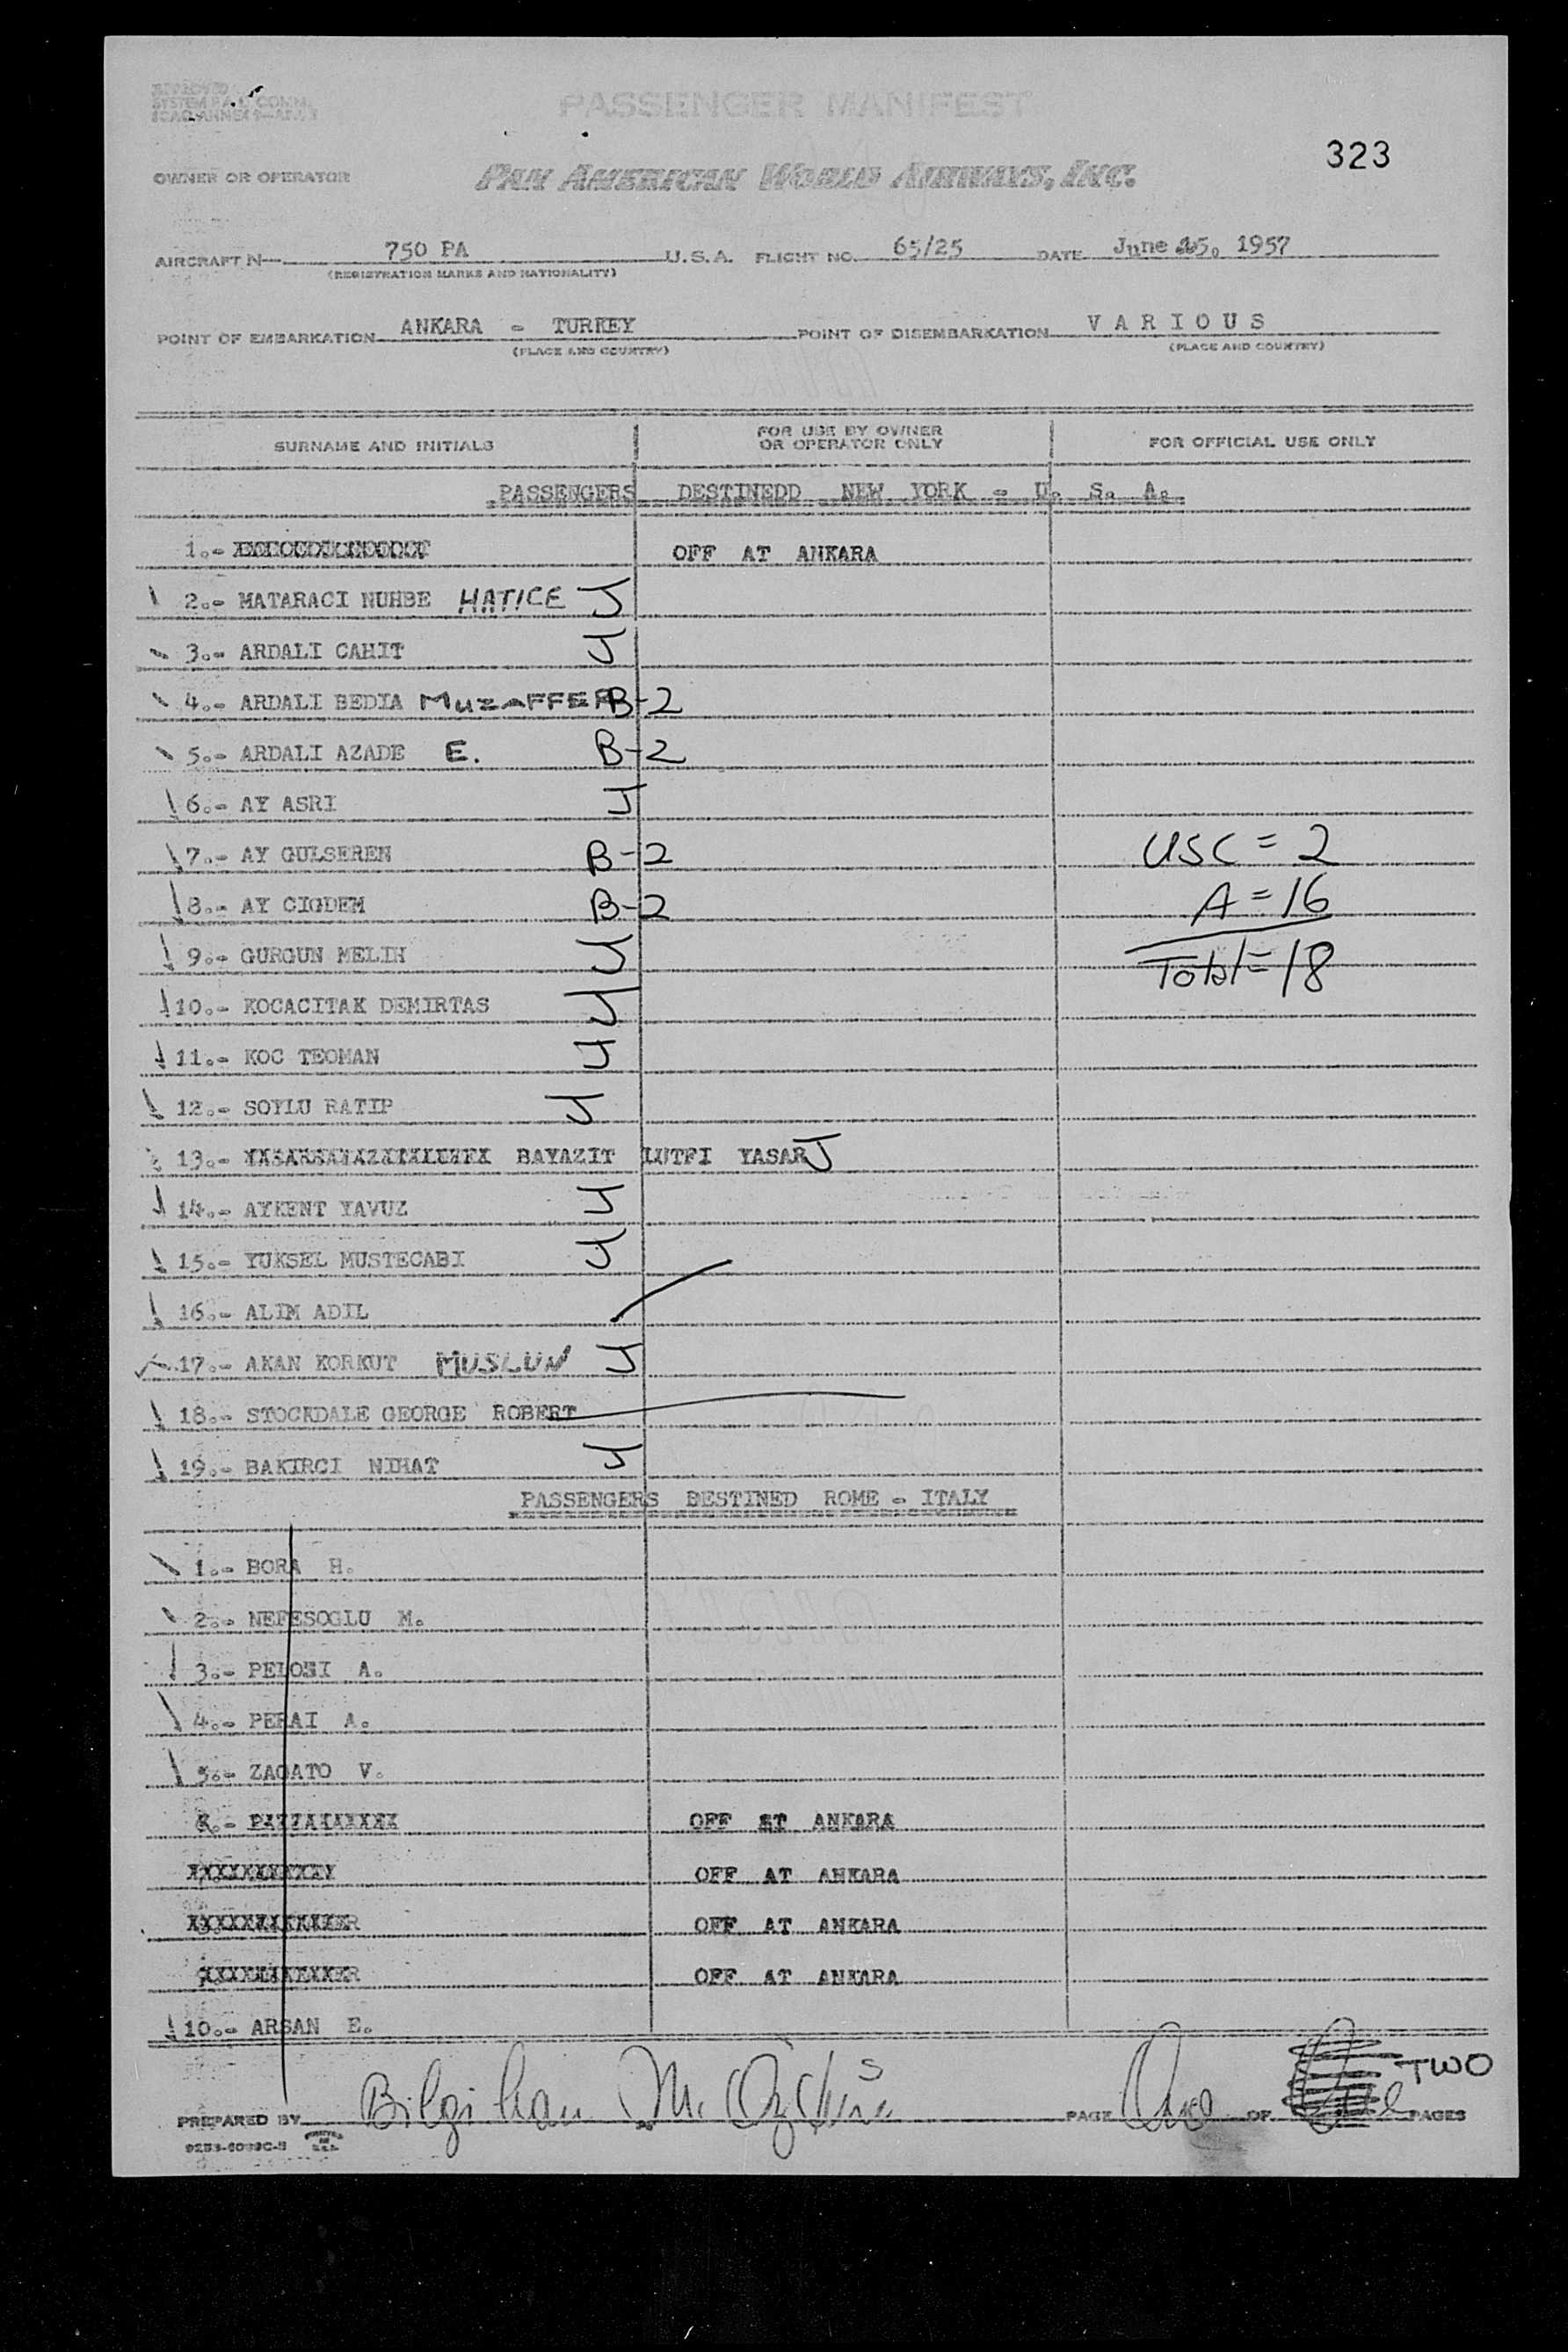 APPROVED
SYSTEM F.A.L. COMM.
ICAO ANNEX 9—
PASSENGER MANIFEST
323
OWNER OR OPERATOR PAN AMERICAN WORLD AIRWAYS, INC.
AIRCRAFT N— 750 PA U.S.A. FLIGHT NO. 65/25 DATE June 15. 1957
(REGISTRATION MARKS AND NATIONALITY)
POINT OF EMBARKATION ANKARA - TURKEY POINT OF DISEMBARKATION VARIOUS
(PLACE AND COUNTRY) (PLACE AND COUNTRY)
SURNAME AND INITIALS FOR USE BY OWNER OR OPERATOR ONLY FOR OFFICIAL USE ONLY
PASSENGERS DESTINEDD NEW YORK - U. S. A.
1.- OFF AT ANKARA
2.- MATARACI NUHBE HATICE J
3.- ARDALI CAHIT J
4.- ARDALI BEDIA MUZAFFER B-2
5.- ARDALI AZADE E. B-2
6.- AY ASRI J
7.- AY GULSEREN B-2 USC = 2
8.- AY CIGDEM B-2 A = 16
9.- GURGUN MELIH J Total = 18
10.- KOCACITAK DEMIRTAS J
11.- KOC TEOMAN J
12.- SOYLU RATIP J
13.- BAYAZIT LUTFI YASAR J
14.- AYKENT YAVUZ J
15.- YUKSEL MUSTECABI J
16.- ALIM ADIL
17.- AKAN KORKUT MUSLUN J
18.- STOCKDALE GEORGE ROBERT
19.- BAKIRCI NIHAT J
PASSENGERS DESTINED ROME - ITALY
1.- BORA H.
2.- NEFESOGLU M.
3.- PELOSI A.
4.- PERAI A.
5.- ZAGATO V.
OFF AT ANKARA
OFF AT ANKARA
OFF AT ANKARA
OFF AT ANKARA
10.- ARSAN E.
PREPARED BY Bilgihan M. PAGE One OF TWO PAGES
PRINTED IN U.S.A.